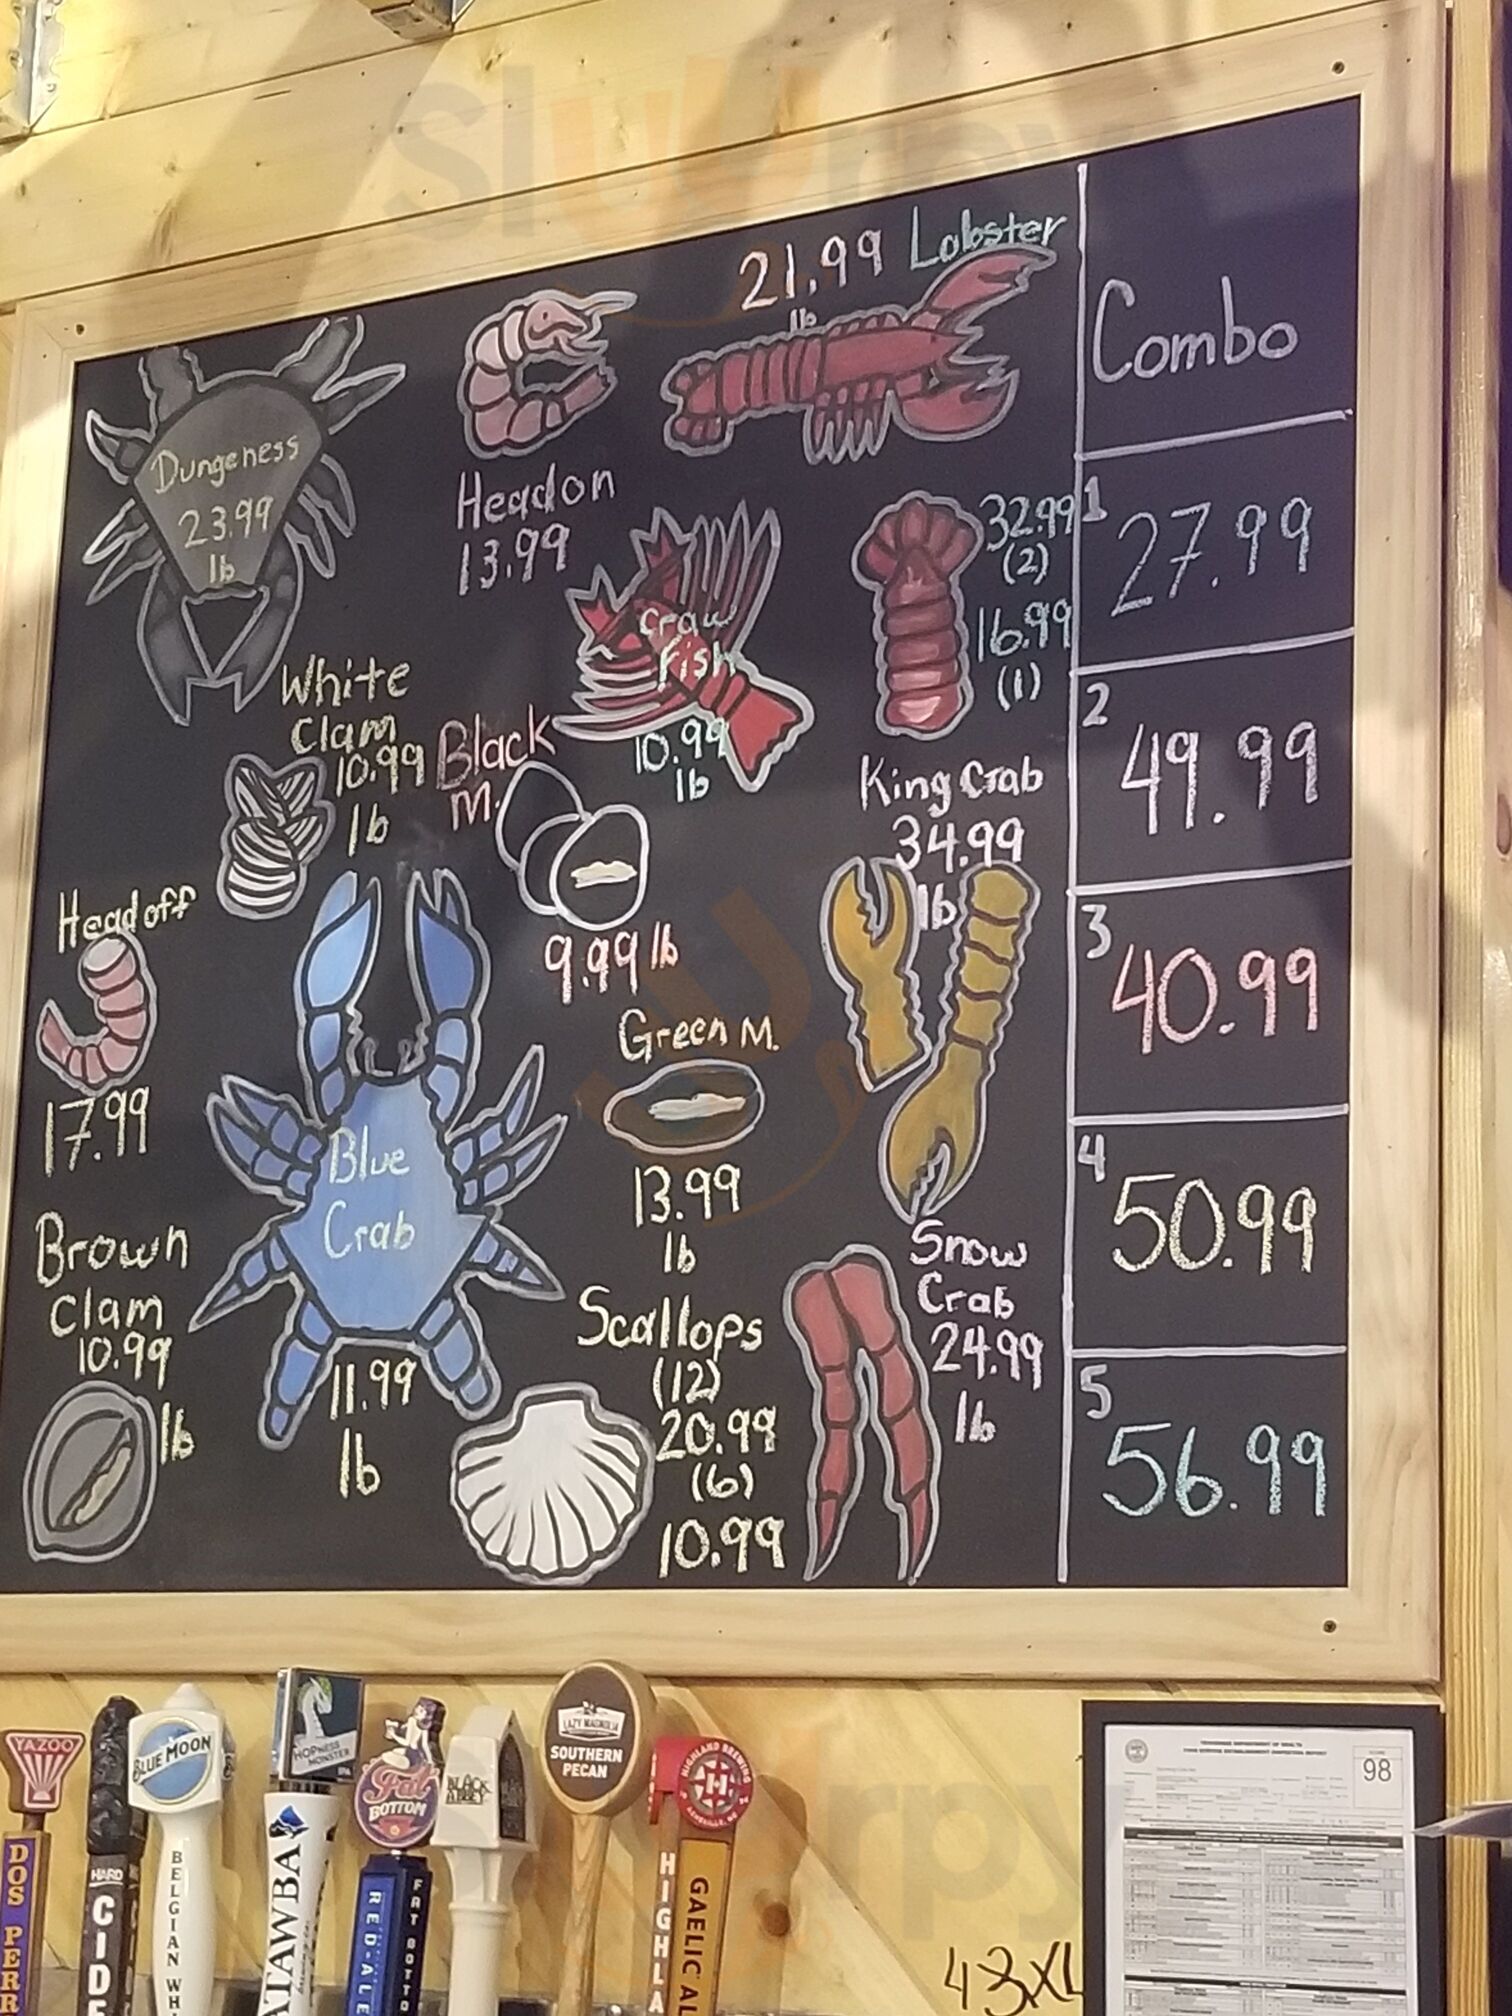 Slurpy
21.99 Lobster
lb
Combo
Dungeness
23.99
lb
Headon
13.99
Craw
Fish
10.99
lb
32.99
(2)
16.99
(1)
White
Clam
10.99
lb
Black
M.
9.99 lb
King Crab
34.99
lb
Head off
17.99
Blue
Crab
11.99
lb
Green M.
13.99
lb
Brown
Clam
10.99
lb
Scallops
(12)
20.99
(6)
10.99
Snow
Crab
24.99
lb
1
27.99
2
49.99
3
40.99
4
50.99
5
56.99
YAZOO
DOS PERR
HARD
CIDE
BLUE MOON
BELGIAN WH
HOPNESS
MONSTER
IPA
ATAWBA
Fat
BOTTOM
RED-ALE
FAT BOTTO
BLACK
ABBEY
LAZY MAGNOLIA
SOUTHERN
PECAN
HIGHLAND BREWING
H
ASHEVILLE, NC
HIGHLA
GAELIC AL
TENNESSEE DEPARTMENT OF HEALTH
FOOD SERVICE ESTABLISHMENT INSPECTION REPORT
SCORE
98